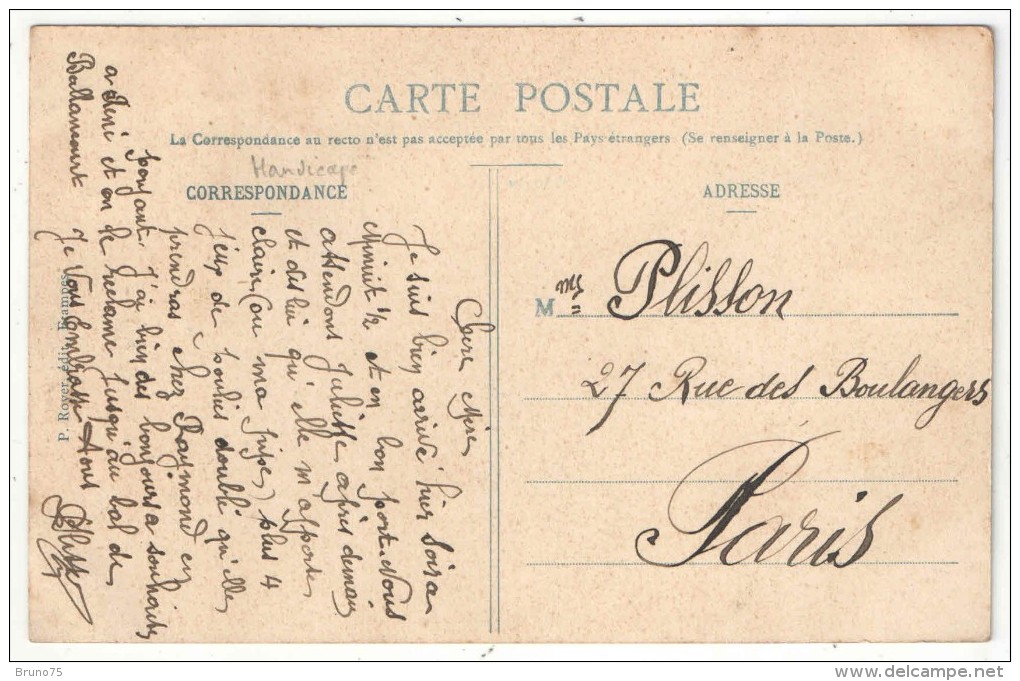 CARTE POSTALE
La Correspondance au recto n'est pas acceptée par tous les Pays étrangers (Se renseigner à la Poste.)
Handicape
CORRESPONDANCE
ADRESSE
Chère Mère
Je suis bien arrivé hier soir a
Minuit 1/2 et en bon port. Nous
attendons Juliette après demain
et dis lui qu'elle m'apporte
claire (ou ma pipe) plus 4
jeux de doublé qu'elle
prendras chez Raymond en
payant. J'ai bien des bonjours a souhaiter
a Déné et on le réclame jusqu'au bal de
Ballancourt Je vous Embrasse tous
Plisson
P. Royer, édit., Etampes
M me Plisson
27 Rue des Boulangers
Paris
Bruno75
delcampe.net